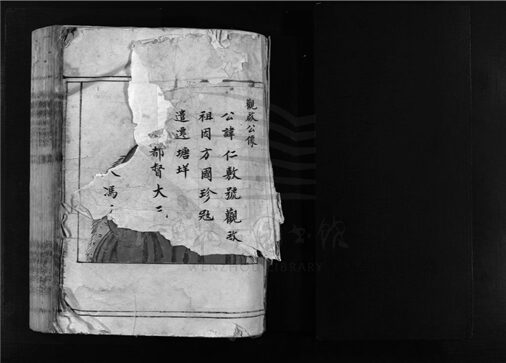 觀啟公像
公諱仁敷號觀啟
祖因方國珍寇
遣遷塘垟
都督大三
馮
WENZHOU LIBRARY